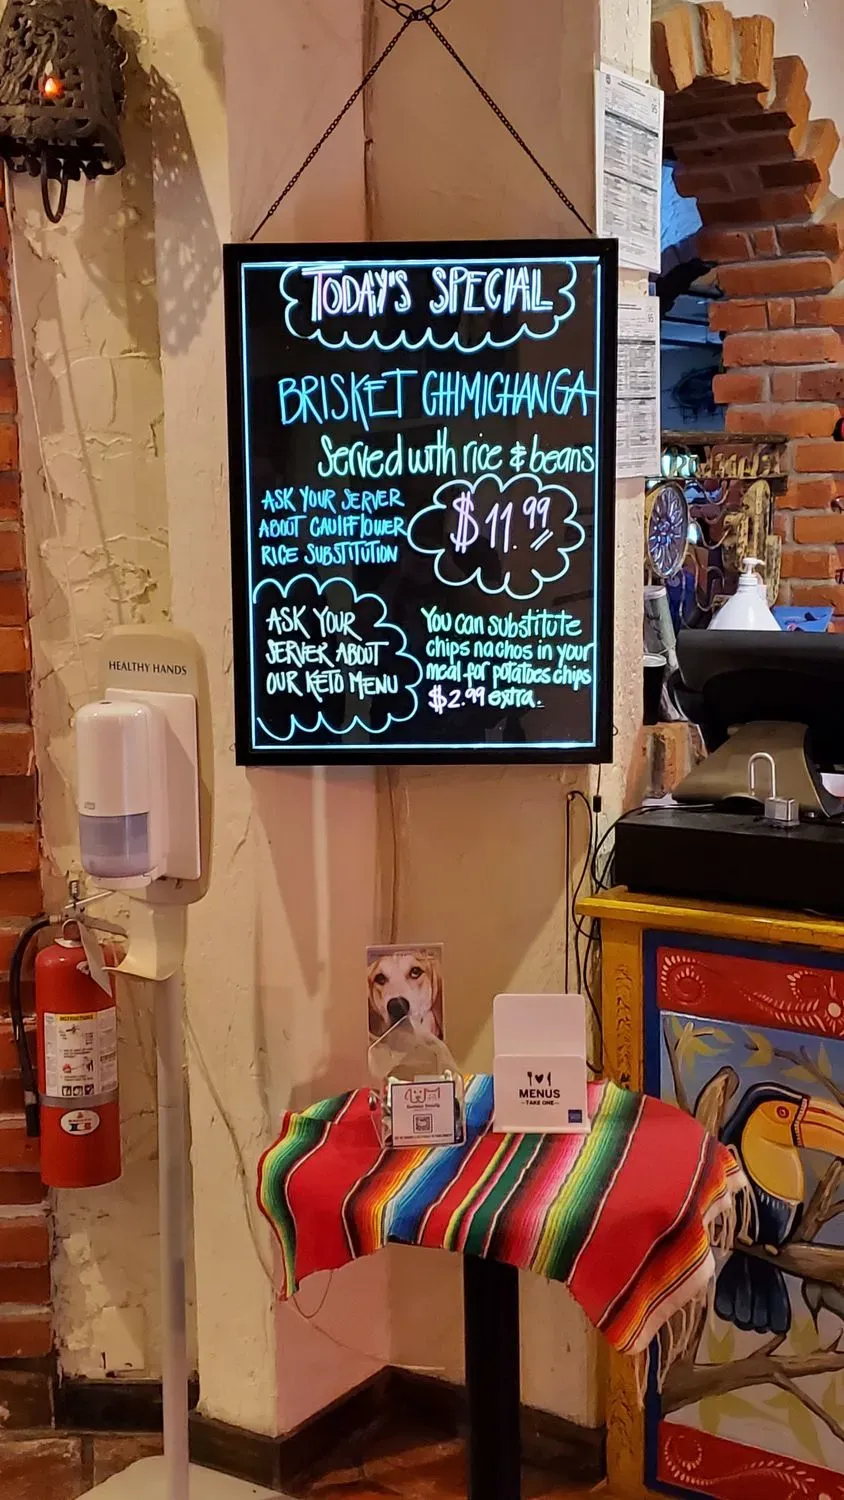 TODAY'S SPECIAL
BRISKET CHIMICHANGA
Served with rice & beans
ASK YOUR SERVER
ABOUT CAULIFLOWER
RICE SUBSTITUTION
$11.99
ASK YOUR
SERVER ABOUT
OUR KETO MENU
You can substitute
chips nachos in your
meal for potatoes chips
$2.99 extra.
HEALTHY HANDS
INSTRUCTIONS
MENUS
TAKE ONE